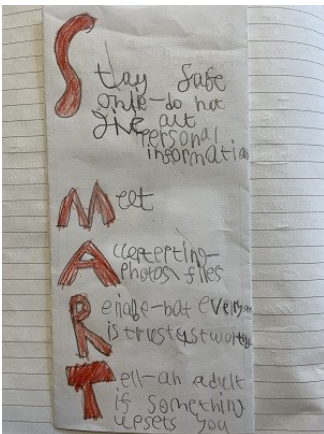 Stay Safe
onlie-do not
give out
Personal
information
Meet
Accepteting-
Photos files
Reliable-not every
is trustustworthy
Tell-an adult
if something
upsets you